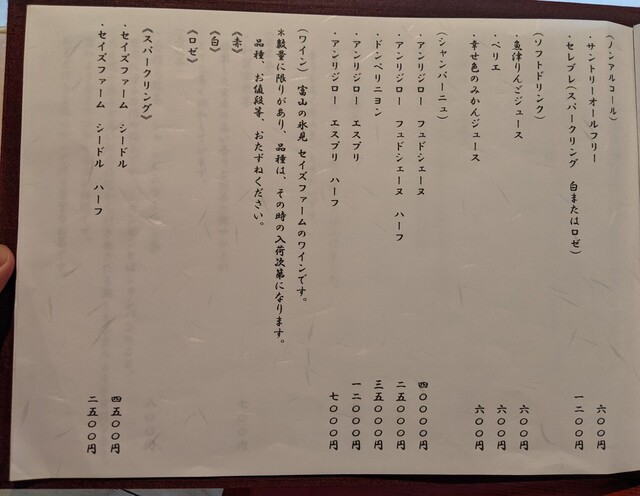 (ノンアルコール)
・サントリーオールフリー 六〇〇円
・セレブレ(スパークリング 白またはロゼ) 一二〇〇円
(ソフトドリンク)
・魚津りんごジュース 六〇〇円
・ペリエ 六〇〇円
・幸せ色のみかんジュース 六〇〇円
(シャンパーニュ)
・アンリジロー フュドシェーヌ 四〇〇〇〇円
・アンリジロー フュドシェーヌ ハーフ 二五〇〇〇円
・ドンペリニヨン 三五〇〇〇円
・アンリジロー エスプリ 一二〇〇〇円
・アンリジロー エスプリ ハーフ 七〇〇〇円
(ワイン) 富山の氷見 セイズファームのワインです。
*数量に限りがあり、品種は、その時の入荷次第になります。
品種、お値段等、おたずねください。
《赤》
《白》
《ロゼ》
《スパークリング》
・セイズファーム シードル 四五〇〇円
・セイズファーム シードル ハーフ 二五〇〇円